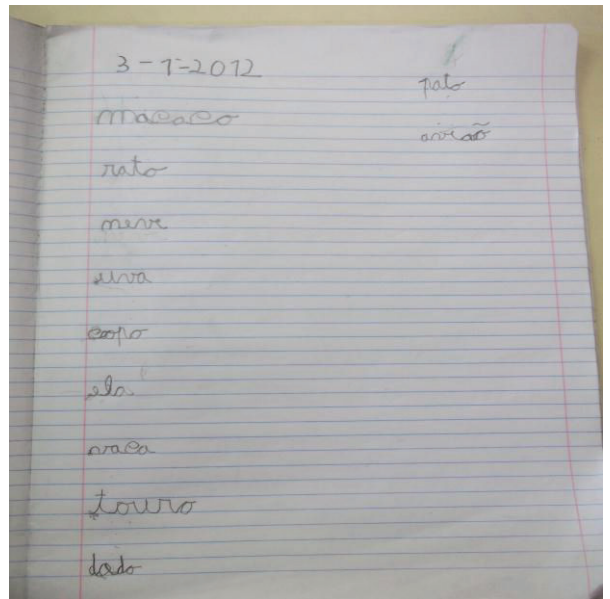 3-1-2012
macaco
rato
neve
uva
copo
ela
vaca
touro
dado
pato
avião